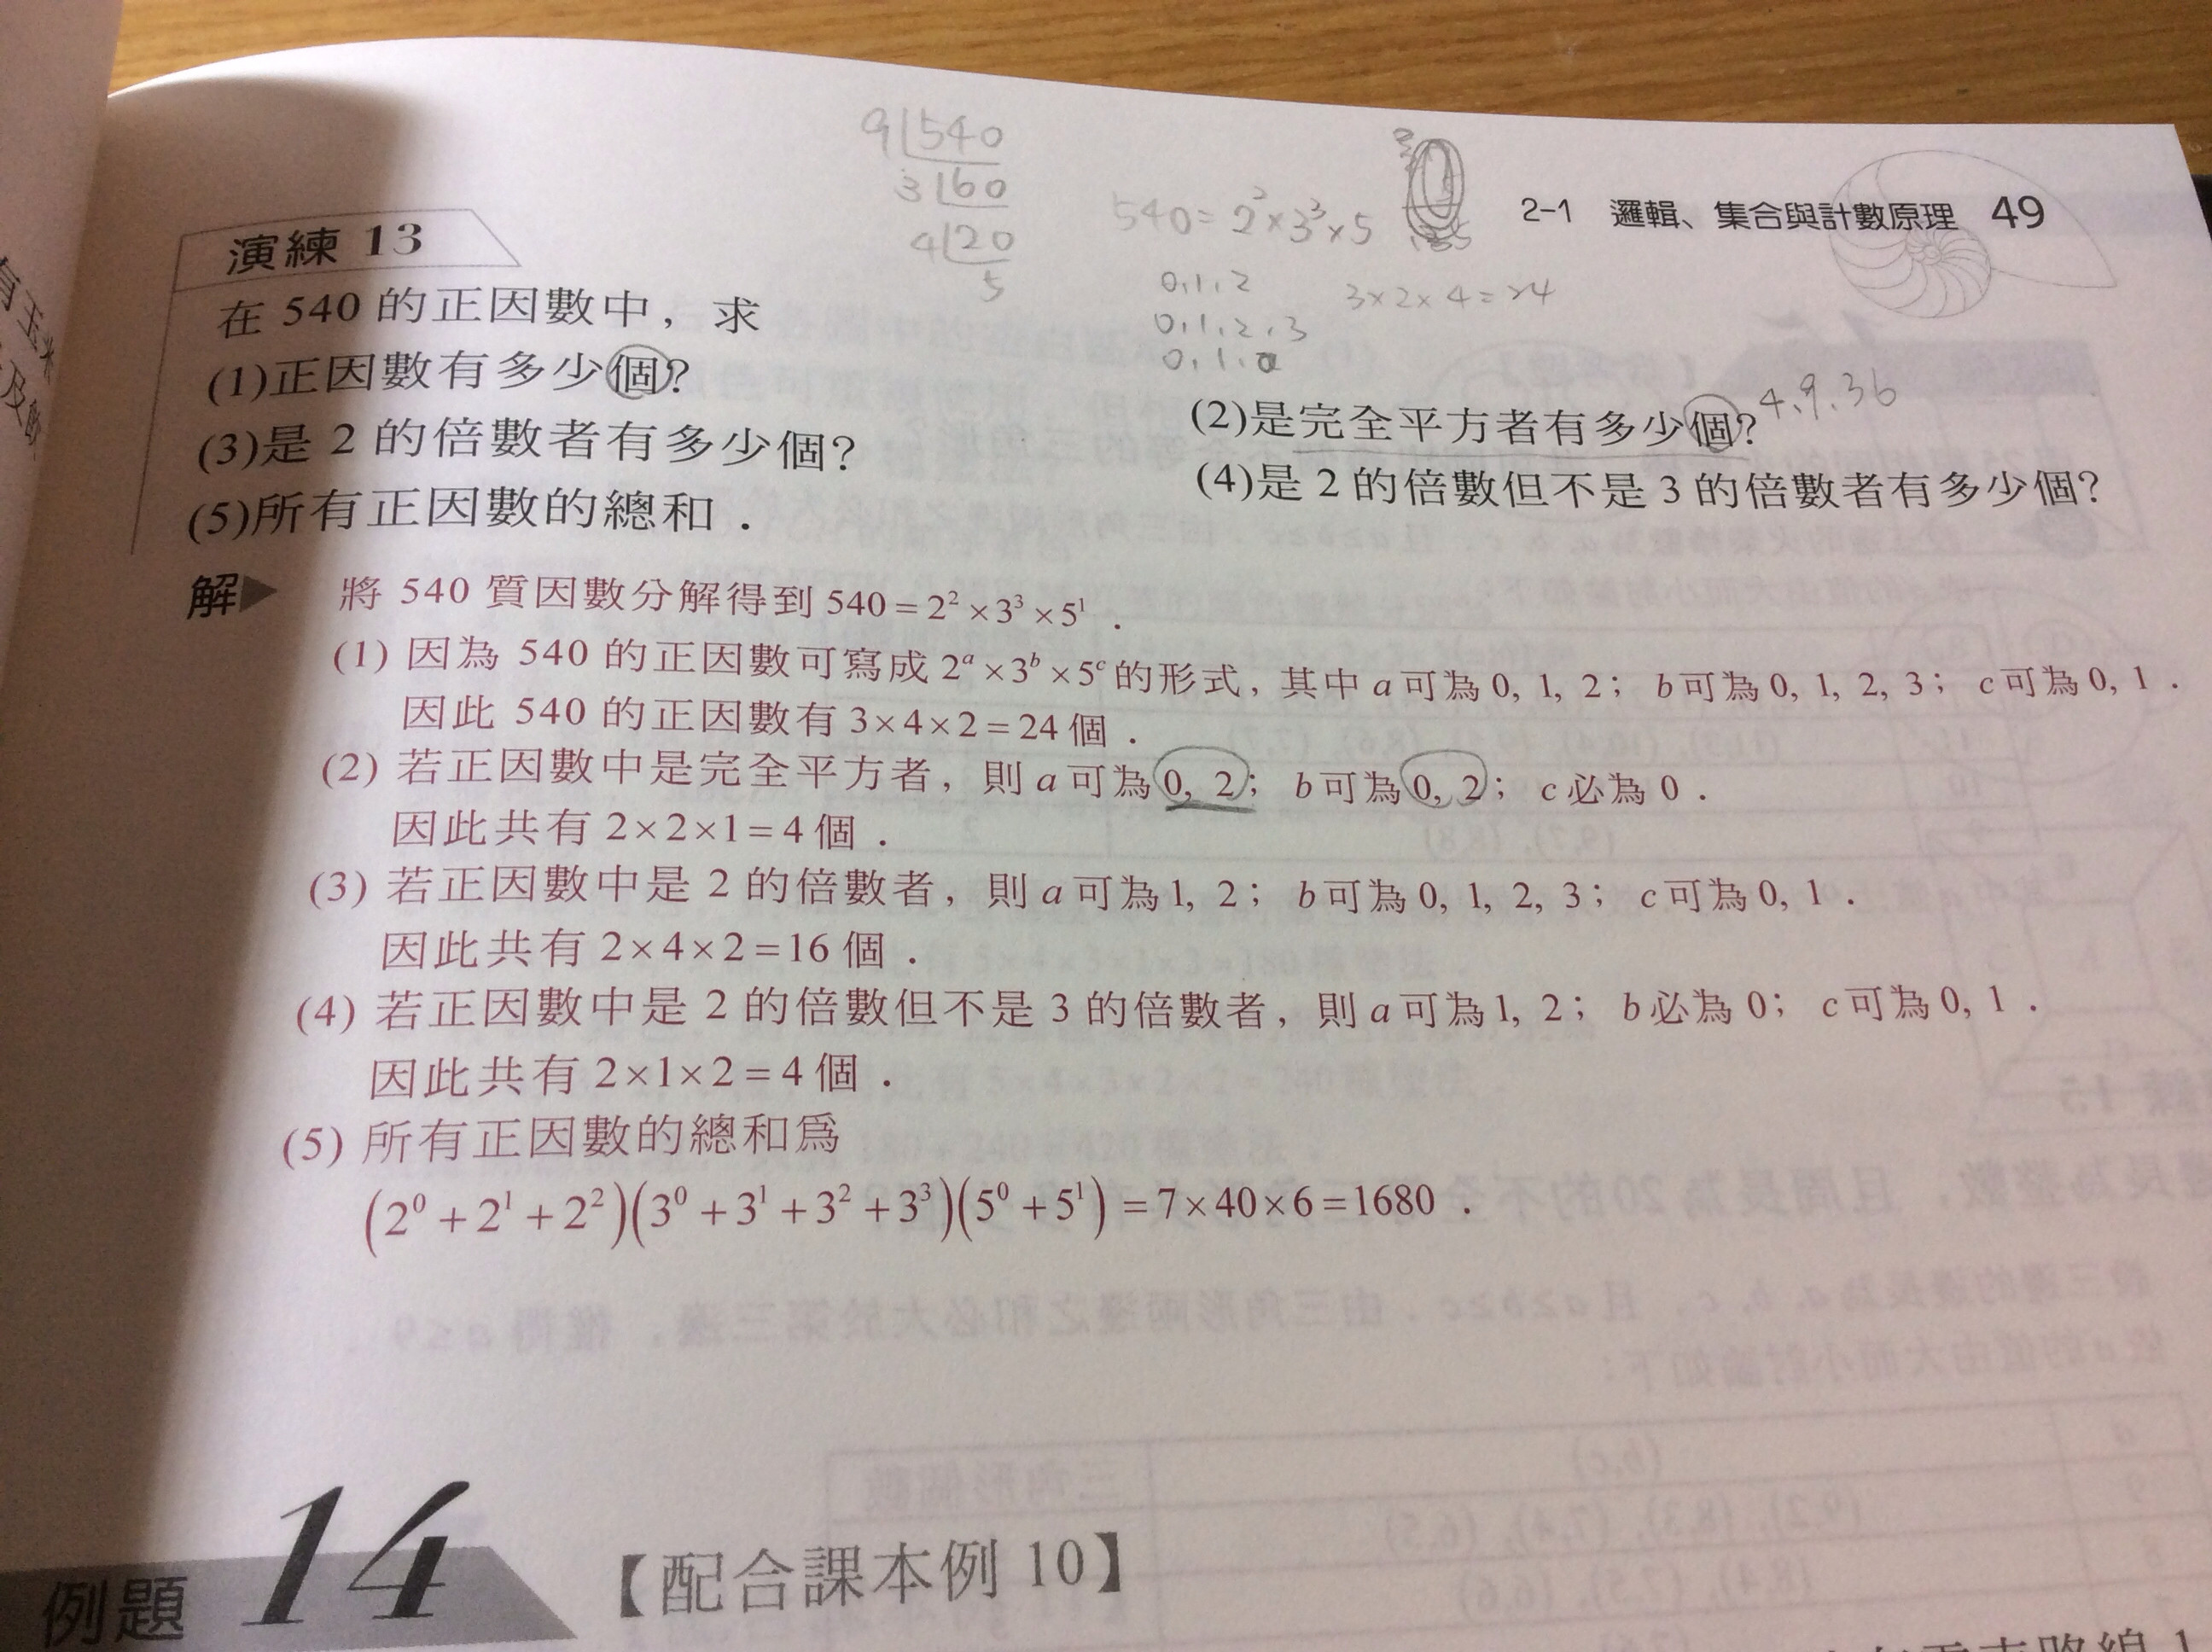 9 540
3 60
4 20
5
540=2²×3³×5
0,1,2
0,1,2,3
0,1
3×2×4=24
2-1 邏輯、集合與計數原理 49
演練 13
在 540 的正因數中，求
(1)正因數有多少個?
(2)是完全平方者有多少個? 4、9、36
(3)是 2 的倍數者有多少個?
(4)是 2 的倍數但不是 3 的倍數者有多少個?
(5)所有正因數的總和．
解▶ 將 540 質因數分解得到 540=2²×3³×5¹．
(1) 因為 540 的正因數可寫成 2ᵃ×3ᵇ×5ᶜ 的形式，其中 a 可為 0, 1, 2； b 可為 0, 1, 2, 3； c 可為 0, 1．
因此 540 的正因數有 3×4×2=24 個．
(2) 若正因數中是完全平方者，則 a 可為 0, 2； b 可為 0, 2； c 必為 0．
因此共有 2×2×1=4 個．
(3) 若正因數中是 2 的倍數者，則 a 可為 1, 2； b 可為 0, 1, 2, 3； c 可為 0, 1．
因此共有 2×4×2=16 個．
(4) 若正因數中是 2 的倍數但不是 3 的倍數者，則 a 可為 1, 2； b 必為 0； c 可為 0, 1．
因此共有 2×1×2=4 個．
(5) 所有正因數的總和爲
(2⁰+2¹+2²)(3⁰+3¹+3²+3³)(5⁰+5¹)=7×40×6=1680．
例題 14 【配合課本例 10】